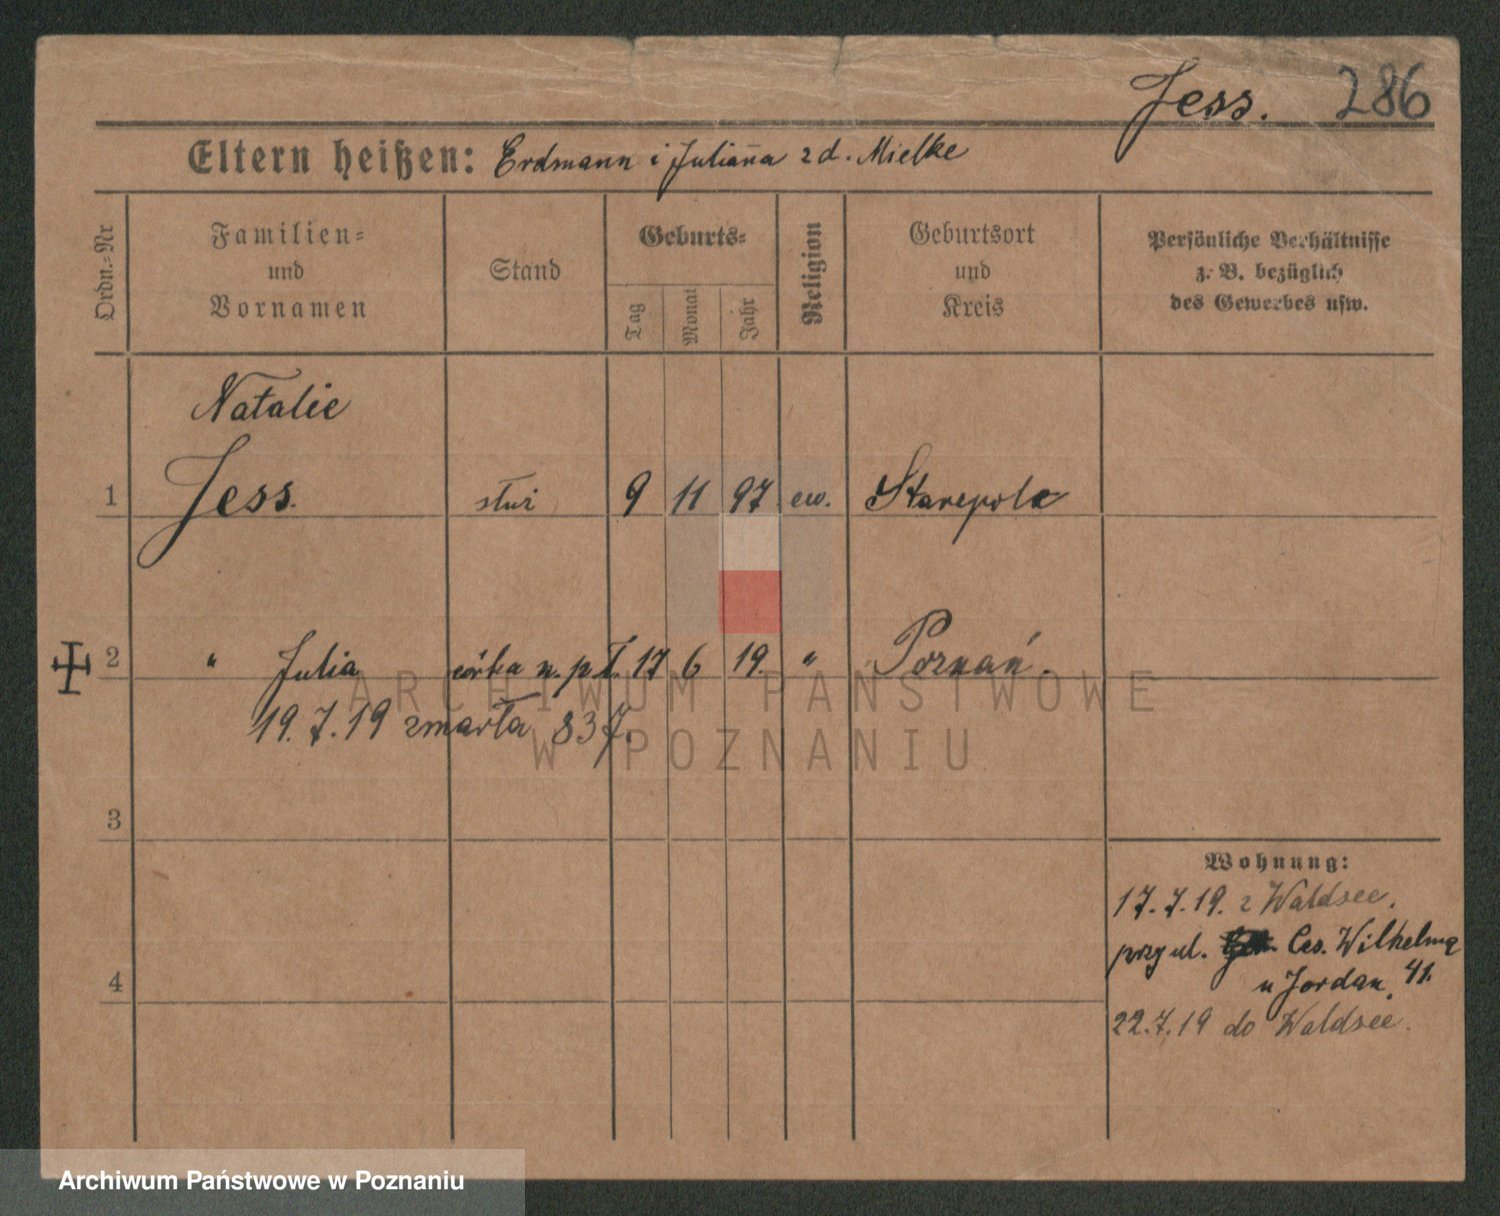 Jess. 286
Eltern heißen: Erdmann i Julianna zd. Mielke
Ordn.-Nr
Familien-
und
Vornamen
Stand
Geburts-
Tag
Monat
Jahr
Religion
Geburtsort
und
Kreis
Persönliche Verhältnisse
z. B. bezüglich
des Gewerbes usw.
Natalie
1 Jess. służ 9 11 97 ew. Starepole
2 " Julia córka n. pł. 17 6 19. " Poznań.
19.7.19 zmarła 83
3
4
Wohnung:
17.7.19. z Waldsee.
przy ul. Ces. Wilhelma
u Jordan. 41.
22.7.19 do Waldsee.
ARCHIWUM PAŃSTWOWE
W POZNANIU
Archiwum Państwowe w Poznaniu